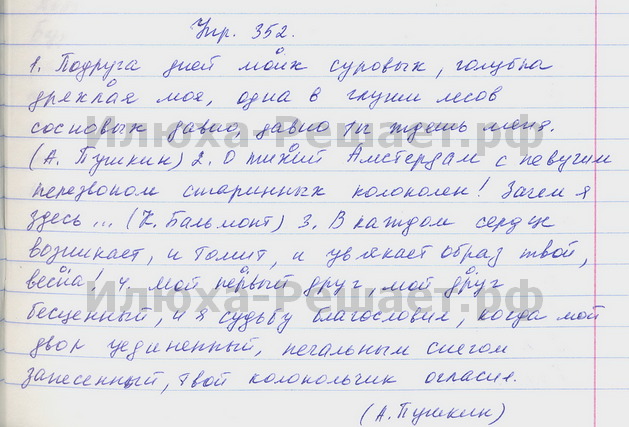 Упр. 352.
1. Подруга дней моих суровых, голубка
дряхлая моя, одна в глуши лесов
сосновых давно, давно ты ждешь меня.
(А. Пушкин) 2. О тихий Амстердам с певучим
перезвоном старинных колоколен! Зачем я
здесь... (К. Бальмонт) 3. В каждом сердце
возникает, и томит, и увлекает образ твой,
весна! 4. Мой первый друг, мой друг
бесценный, и я судьбу благословил, когда мой
двор уединенный, печальным снегом
занесенный, твой колокольчик огласил.
(А. Пушкин)
Илюха-Решает.рф
Илюха-Решает.рф